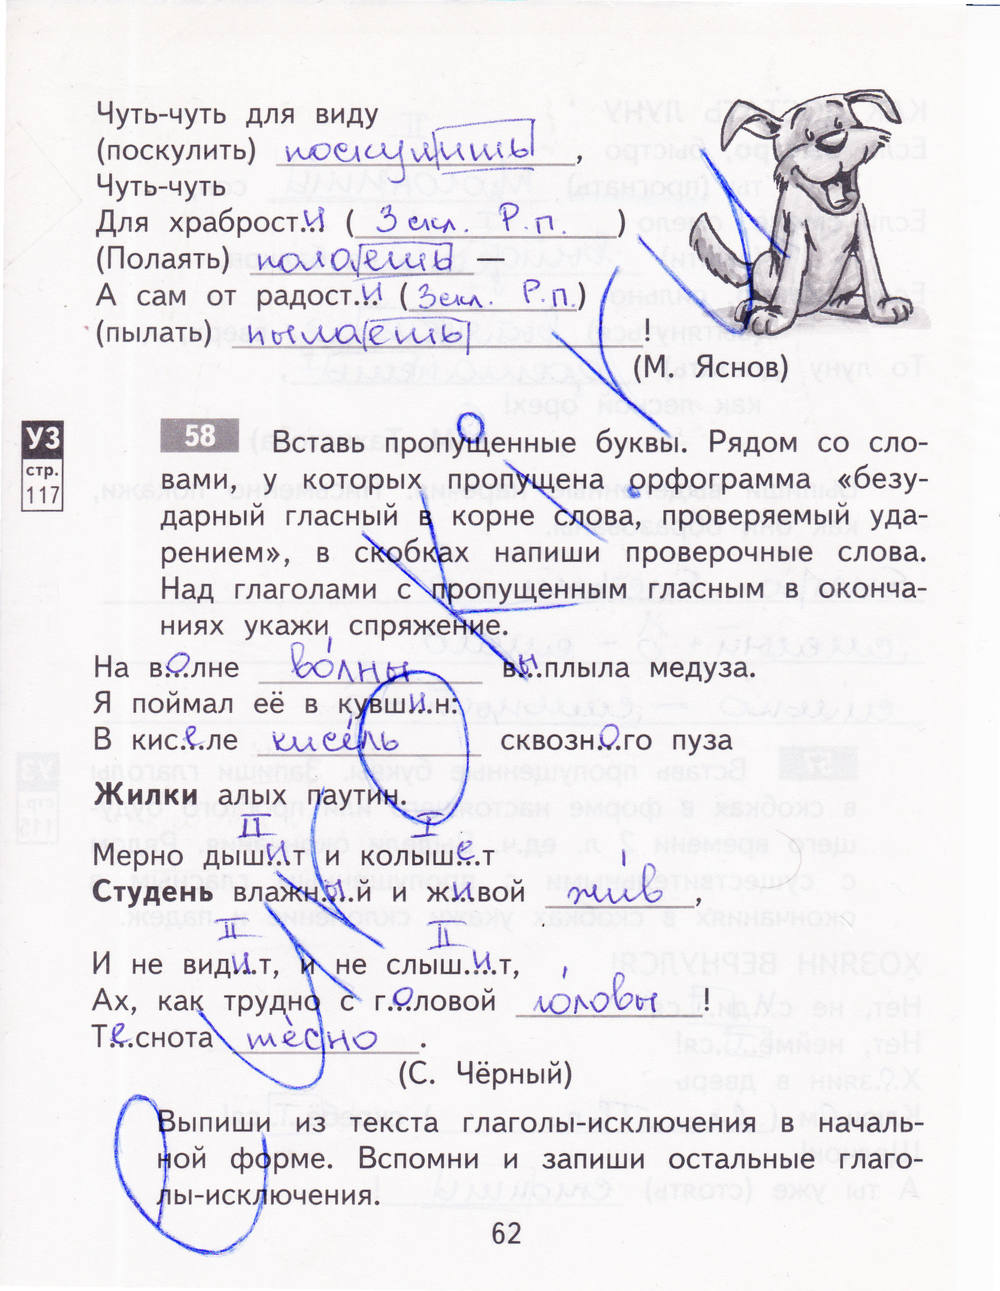 Чуть-чуть для виду
(поскулить) поскулишь,
Чуть-чуть
Для храброст.и. (3 скл. Р.п.)
(Полаять) полаешь
А сам от радост.и. (3 скл. Р.п.)
(пылать) пылаешь !
(М. Яснов)
УЗ
стр.
117
58 Вставь пропущенные буквы. Рядом со сло-
вами, у которых пропущена орфограмма «безу-
дарный гласный в корне слова, проверяемый уда-
рением», в скобках напиши проверочные слова.
Над глаголами с пропущенным гласным в оконча-
ниях укажи спряжение.
На в.о.лне во́лны в.ы.плыла медуза.
Я поймал её в кувш.и.н:
В кис.е.ле кисе́ль сквозн.о.го пуза
Жилки алых паутин.
II I
Мерно дыш.и.т и колыш.е.т
Студень влажн.ы.й и ж.и.вой жи́в ,
II II
И не вид.и.т, и не слыш.и.т,
Ах, как трудно с г.о.ловой го́ловы !
Т.е.снота те́сно .
(С. Чёрный)
Выпиши из текста глаголы-исключения в началь-
ной форме. Вспомни и запиши остальные глаго-
лы-исключения.
62